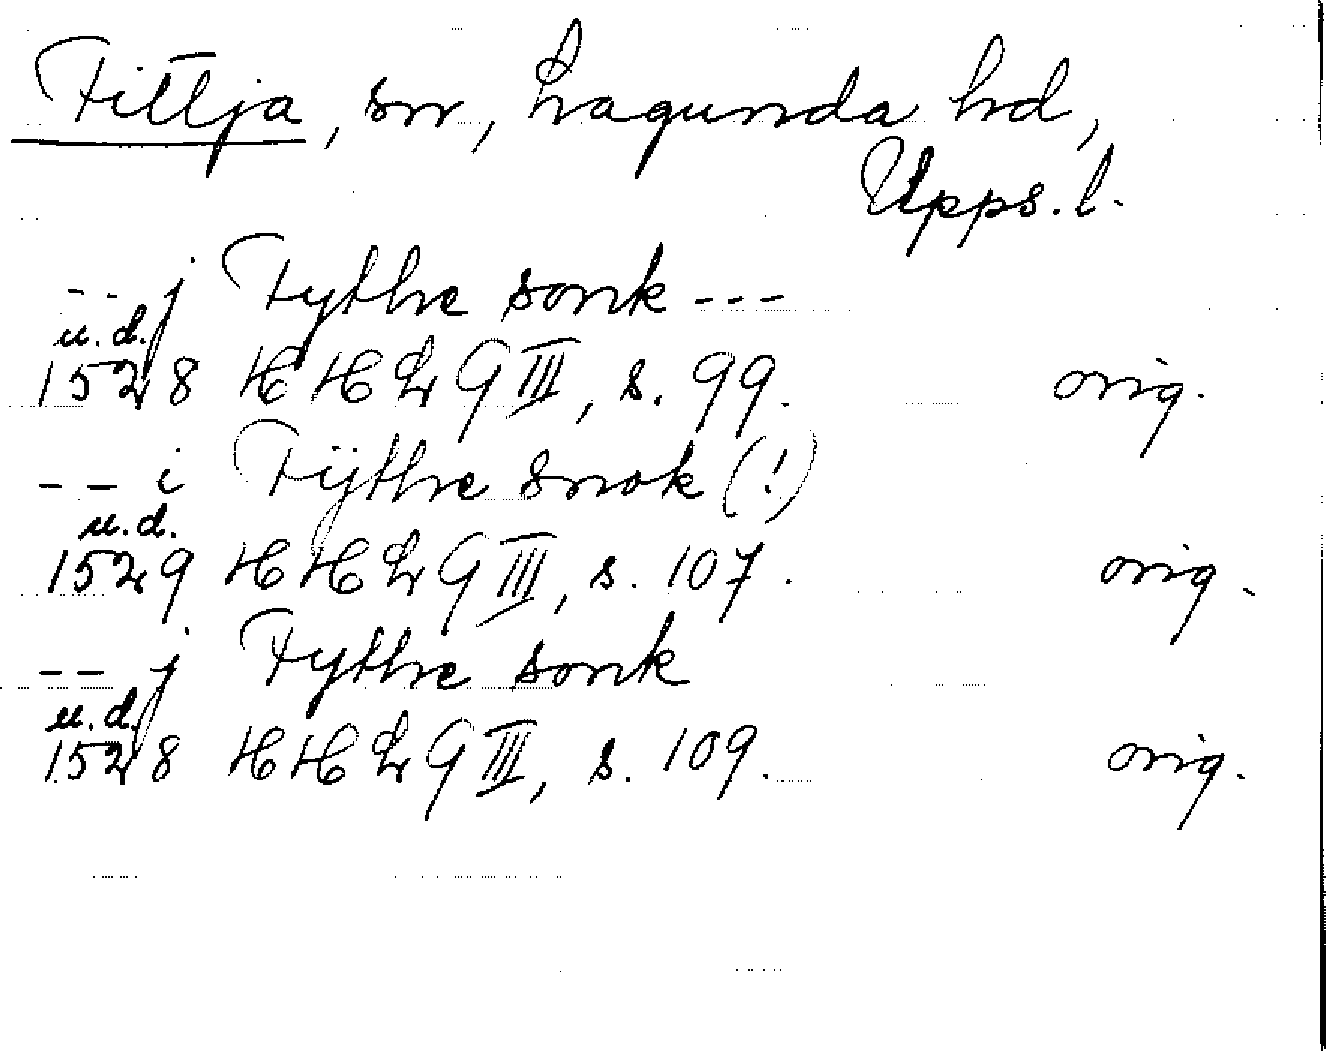 Fittja, sn, Lagunda hd,
Upps. l.
-- j Fythe sonk ---
u.d.
1528 HHLG III, s. 99. orig.
-- i Fÿthe snok (!)
u.d.
1529 HHLG III, s. 107. orig.
-- j Fythe sonk
u.d.
1528 HHLG III, s. 109. orig.